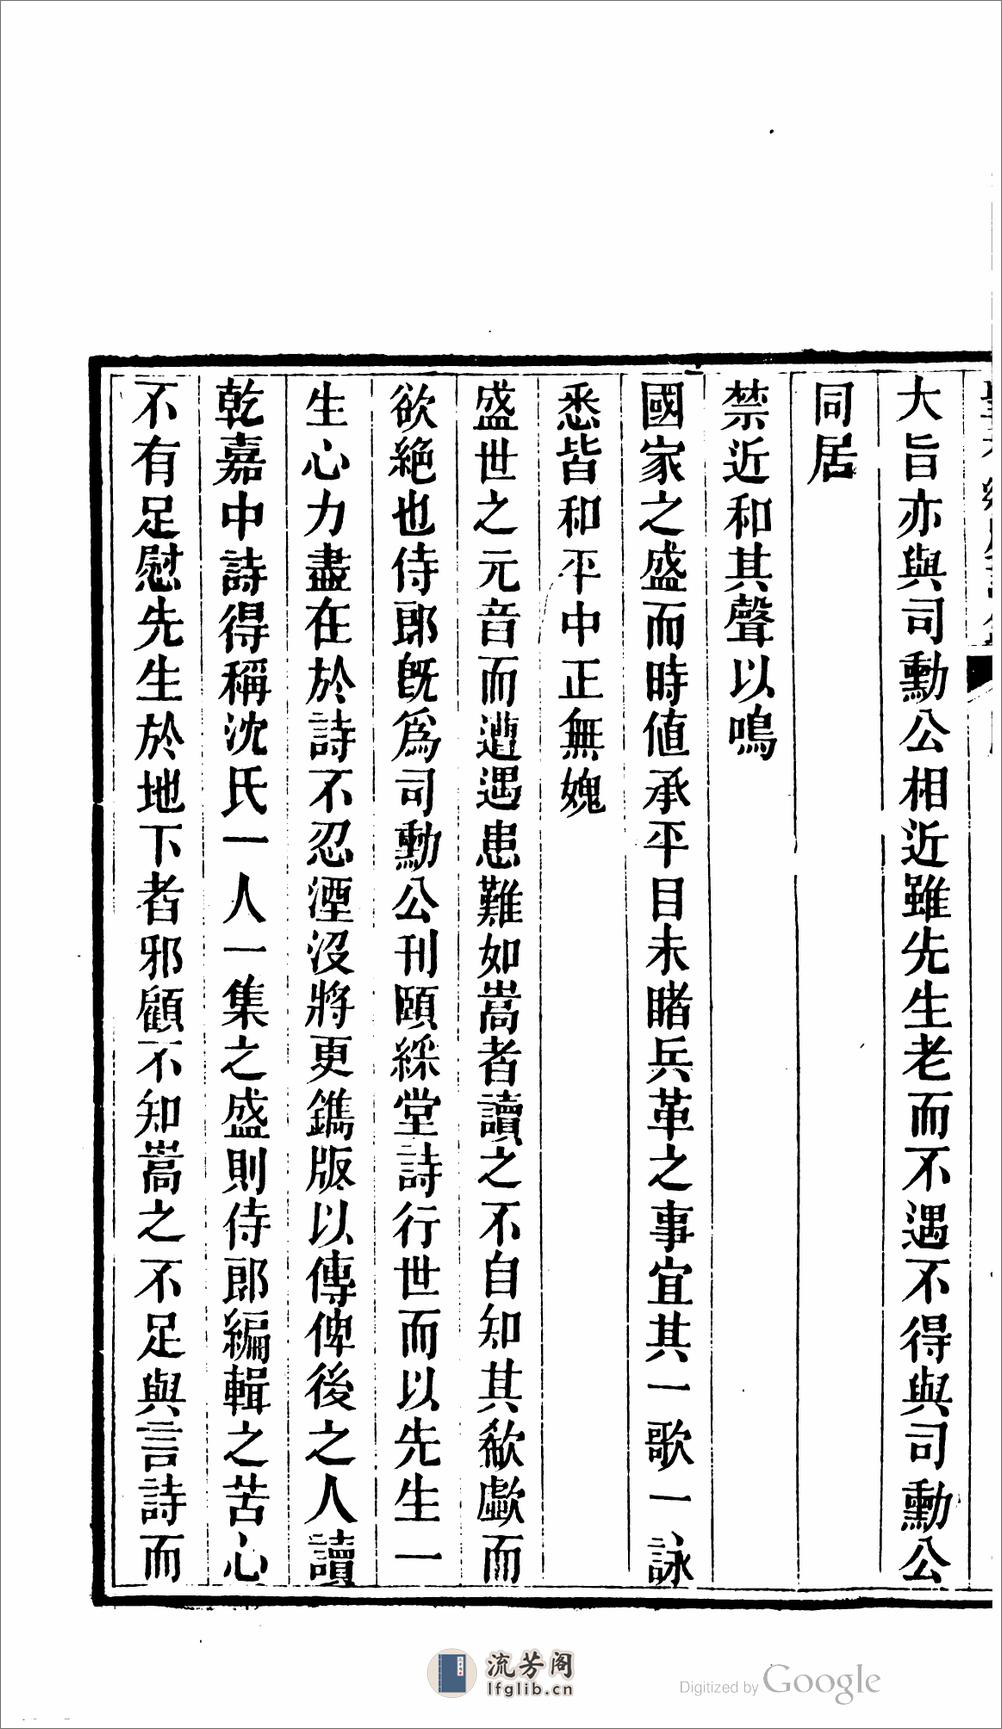 大旨亦與司勳公相近雖先生老而不遇不得與司勳公
同居
禁近和其聲以鳴
國家之盛而時值承平目未睹兵革之事宜其一歌一詠
悉皆和平中正無媿
盛世之元音而遭遇患難如嵩者讀之不自知其欷歔而
欲絕也侍郎旣爲司勳公刊頤綵堂詩行世而以先生一
生心力盡在於詩不忍湮沒將更鐫版以傳俾後之人讀
乾嘉中詩得稱沈氏一人一集之盛則侍郎編輯之苦心
不有足慰先生於地下者邪顧不知嵩之不足與言詩而
流芳阁
lfglib.cn
Digitized by Google